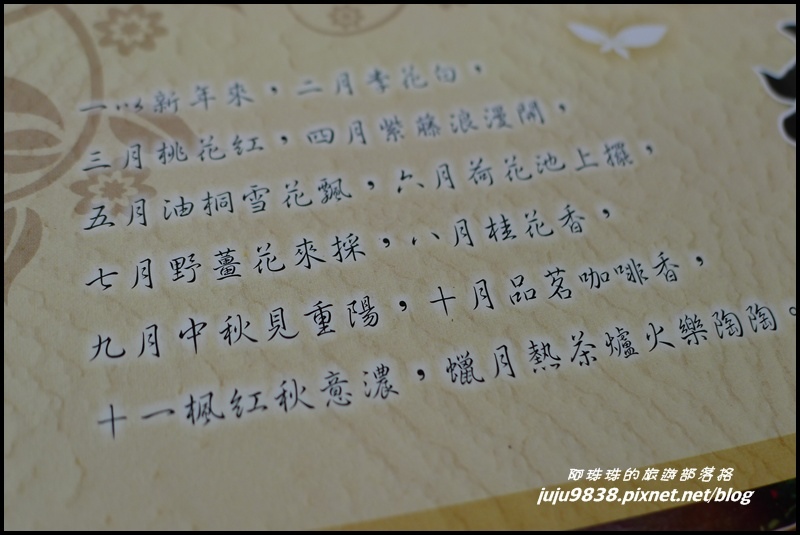 一以新年來，二月李花白，
三月桃花紅，四月紫藤浪漫開，
五月油桐雪花飄，六月荷花池上擺，
七月野薑花來採，八月桂花香，
九月中秋見重陽，十月品茗咖啡香，
十一楓紅秋意濃，蠟月熱茶爐火樂陶陶。
阿珠珠的旅遊部落格
juju9838.pixnet.net/blog